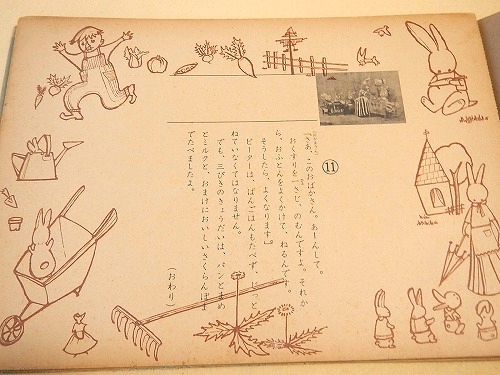 ⑪
「さあ、このおばかさん。あーんして。
おくすりを一さじ、のむんですよ。それか
ら、おふとんをよくかけて、ねるんです。
そうしたら、よくなります」。
ピーターは、ばんごはんもたべず、じっと
ねていなくてはなりません。
でも、三びきのきょうだいは、パンとまめ
とミルクと、おまけにおいしいさくらんぼま
でたべましたよ。
（おわり）